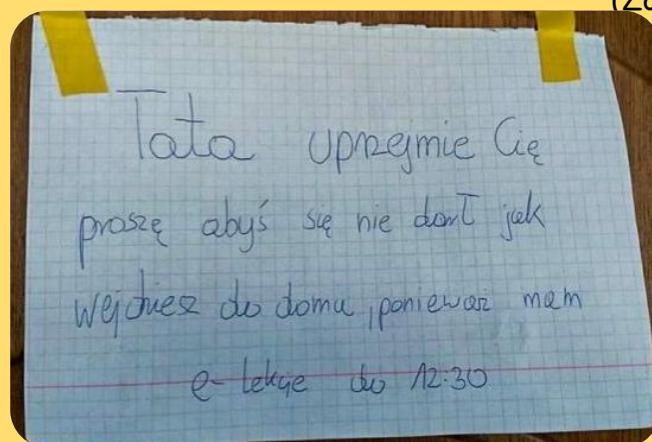 (Za
Tata uprzejmie Cię
proszę abyś się nie darł jak
wejdziesz do domu, ponieważ mam
e-lekcje do 12:30